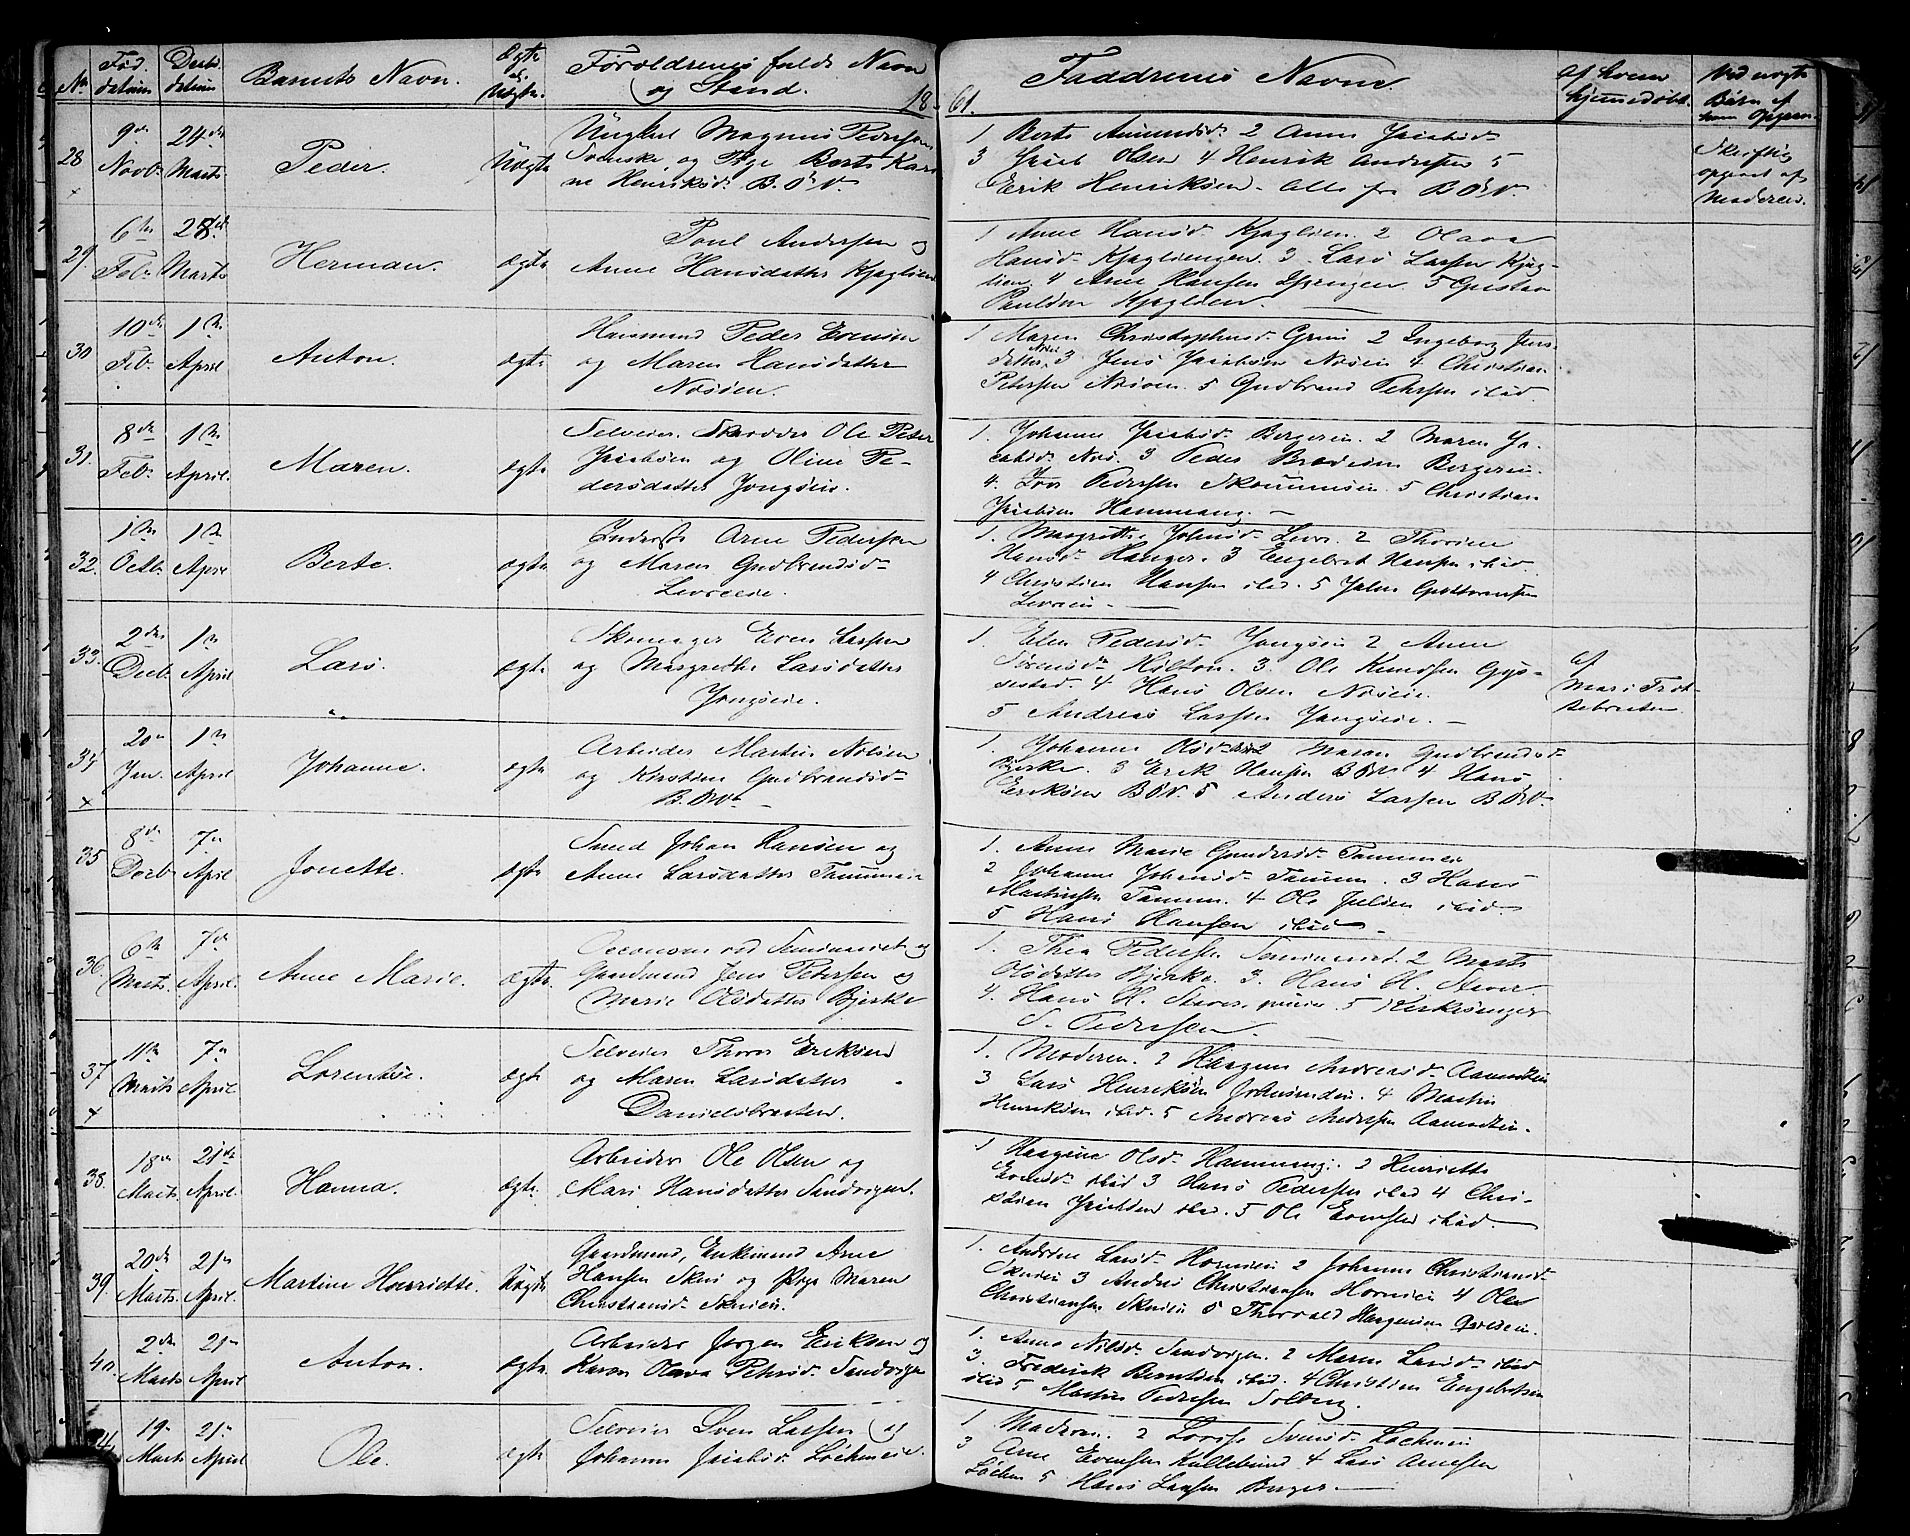 No. Fød. datum Døbs datum Barnets Navn. Ægte el. Uægte. Forældrenes fulde Navn og Stand. 1861. Faddrenes Navne. Af hvem hjemmedøbt. Ved uægte Børn af hvem opgiven
28 9de Novb. 24de Marts Peder. Uægte
Ungkarl Magnus Pedersen
Svenske og Pige Berte Kari-
ne Henriksd. B.Ø.V
1 Berte Amundsd. 2 Anne Jacobsd.
3 Jacob Olsen 4 Henrik Andresen 5
Erik Henriksen. Alle fra B.Ø.V.
Skriftlig
opgivet af
Moderen.
29. 6te Feb. 28de Marts Herman. ægte
Poul Andersen og
Anne Hansdatter Kjaglien
1 Anne Hansd. Kjaglien. 2 Olava
Hansd. Kjagliengen. 3 Lars Larsen Kjag-
lien. 4 Arne Hansen 5 Gustav
Paulsen Kjaglien.
30 10de Feb. 1ste April Anton. ægte
Huusmand Peder Evensen
og Maren Hansdatter
Nesøen.
1 Maren Christophersd. Grini 2 Ingeborg Jens-
datter 3 Jens Jacobsen 4 Christian
Petersen 5 Gudbrand Petersen ibid.
31. 8de Feb. 1ste April. Maren. ægte
Selveier. Skrædder Ole Peter
Jacobsen og Oline Pe-
dersdatter Jongseie.
1. Johanne Jacobsd. Bergereie. 2 Maren Ja-
cobsd. 3 Peder Bergereie.
4. Petersen 5 Christian
Jacobsen Hammang.
32. 1ste Octb. 1ste April Berte. ægte
Inderst Arne Pedersen
og Maren Gudbrandsd.
Levreeie.
1. Margrethe Johnsd. Levre. 2 Thorine
Hansd. Hanger. 3 Engebret Hansen ibid.
4 Christian Hansen ibid. 5 Johan
Levreeie.
33. 2den Decb. 1ste April Lars. ægte
Skomager Even Larsen
og Margrethe Larsdatter
Jongseie.
1. Elen Pedersd. Jongseie 2 Anne
Sørensd. Hilton. 3. Ole Knudsen Gjøs-
sestad. 4 Hans Olsen
5 Andreas Larsen Jongseie.
af
Mari
34 20de Jan. 1ste April Johanne. ægte
Arbeider Martin Nilsen
og Kirstine Gudbrandsd.
B.Ø.V.
1. Johanne Olsd. 2 Maren Gudbrandsd.
Bjerke. 3 Erik Hansen B.Ø.V. 4 Hans
Eriksen B.Ø.V. 5 Anders Larsen B.Ø.V.
35 8de Decb. 7de April Jonette. ægte
Smed Johan Hansen og
Anne Larsdatter
1. Anne Marie Gundersd.
2 Johanne Johansd. 3 Hans
Martinsen 4 Ole Julsen ibid.
5 Hans Hansen ibid.
36. 6te Marts. 7de April. Anne Marie. ægte
Oeconom ved Seminariet og
Gaardmand Jens Petersen og
Marie Olsdatter Bjerke
1. Thea Pedersen Seminariet. 2 Marte
Olsdatter Bjerke. 3. Hans H.
4. Hans H. 5 Kirkesanger
S. Pedersen.
37 11te Marts 7de April Lorentse. ægte
Selveier Thore Eriksen
og Maren Larsdatter
Danielsbraaten.
1. Moderen. 2 Andreasd.
3 Lars Henriksen 4 Martin
Henriksen ibid. 5 Andreas Andersen
38. 18de Marts. 21de April. Hanna. ægte
Arbeider Ole Olsen og
Mari Hansdatter Sandvigen.
1 Olsd. Hammang. 2 Henriette
Evensd. ibid 3 Hans Pedersen ibid 4 Chri-
stian Jacobsen ibid. 5 Ole Evensen ibid.
39. 20de Marts. 21de April. Martine Henriette. Uægte
Gaardmand, Enkemand Arne
Hansen Skui og Pige Maren
Christiansd. Skuieie.
1. Andrine Larsd. Horneeie 2 Johanne Christiansd.
Skuieie 3 Andreas Christiansen Horneeie 4 Ole
Christiansen Skuieie 5 Thorvald
40. 2den Marts 21de April Anton. ægte
Arbeider Jørgen Eriksen og
Karen Olava Petersd. Sandvigen
1. Anne Nilsd. Sandvigen. 2 Maren Larsd. ibid
3. Frederik Berntsen ibid. 4 Christian Engebretsen
ibid 5 Martin Pedersen Solberg.
41. 19de Marts 21de April Ole. ægte
Selveier Sven Larsen og
Johanne Jacobsd. Løchenseie.
1 Moderen. 2 Lovise Svensd.
3 Arne Evensen Kullebund 4 Lars Arnesen
Løchen 5 Hans Larsen Berger.